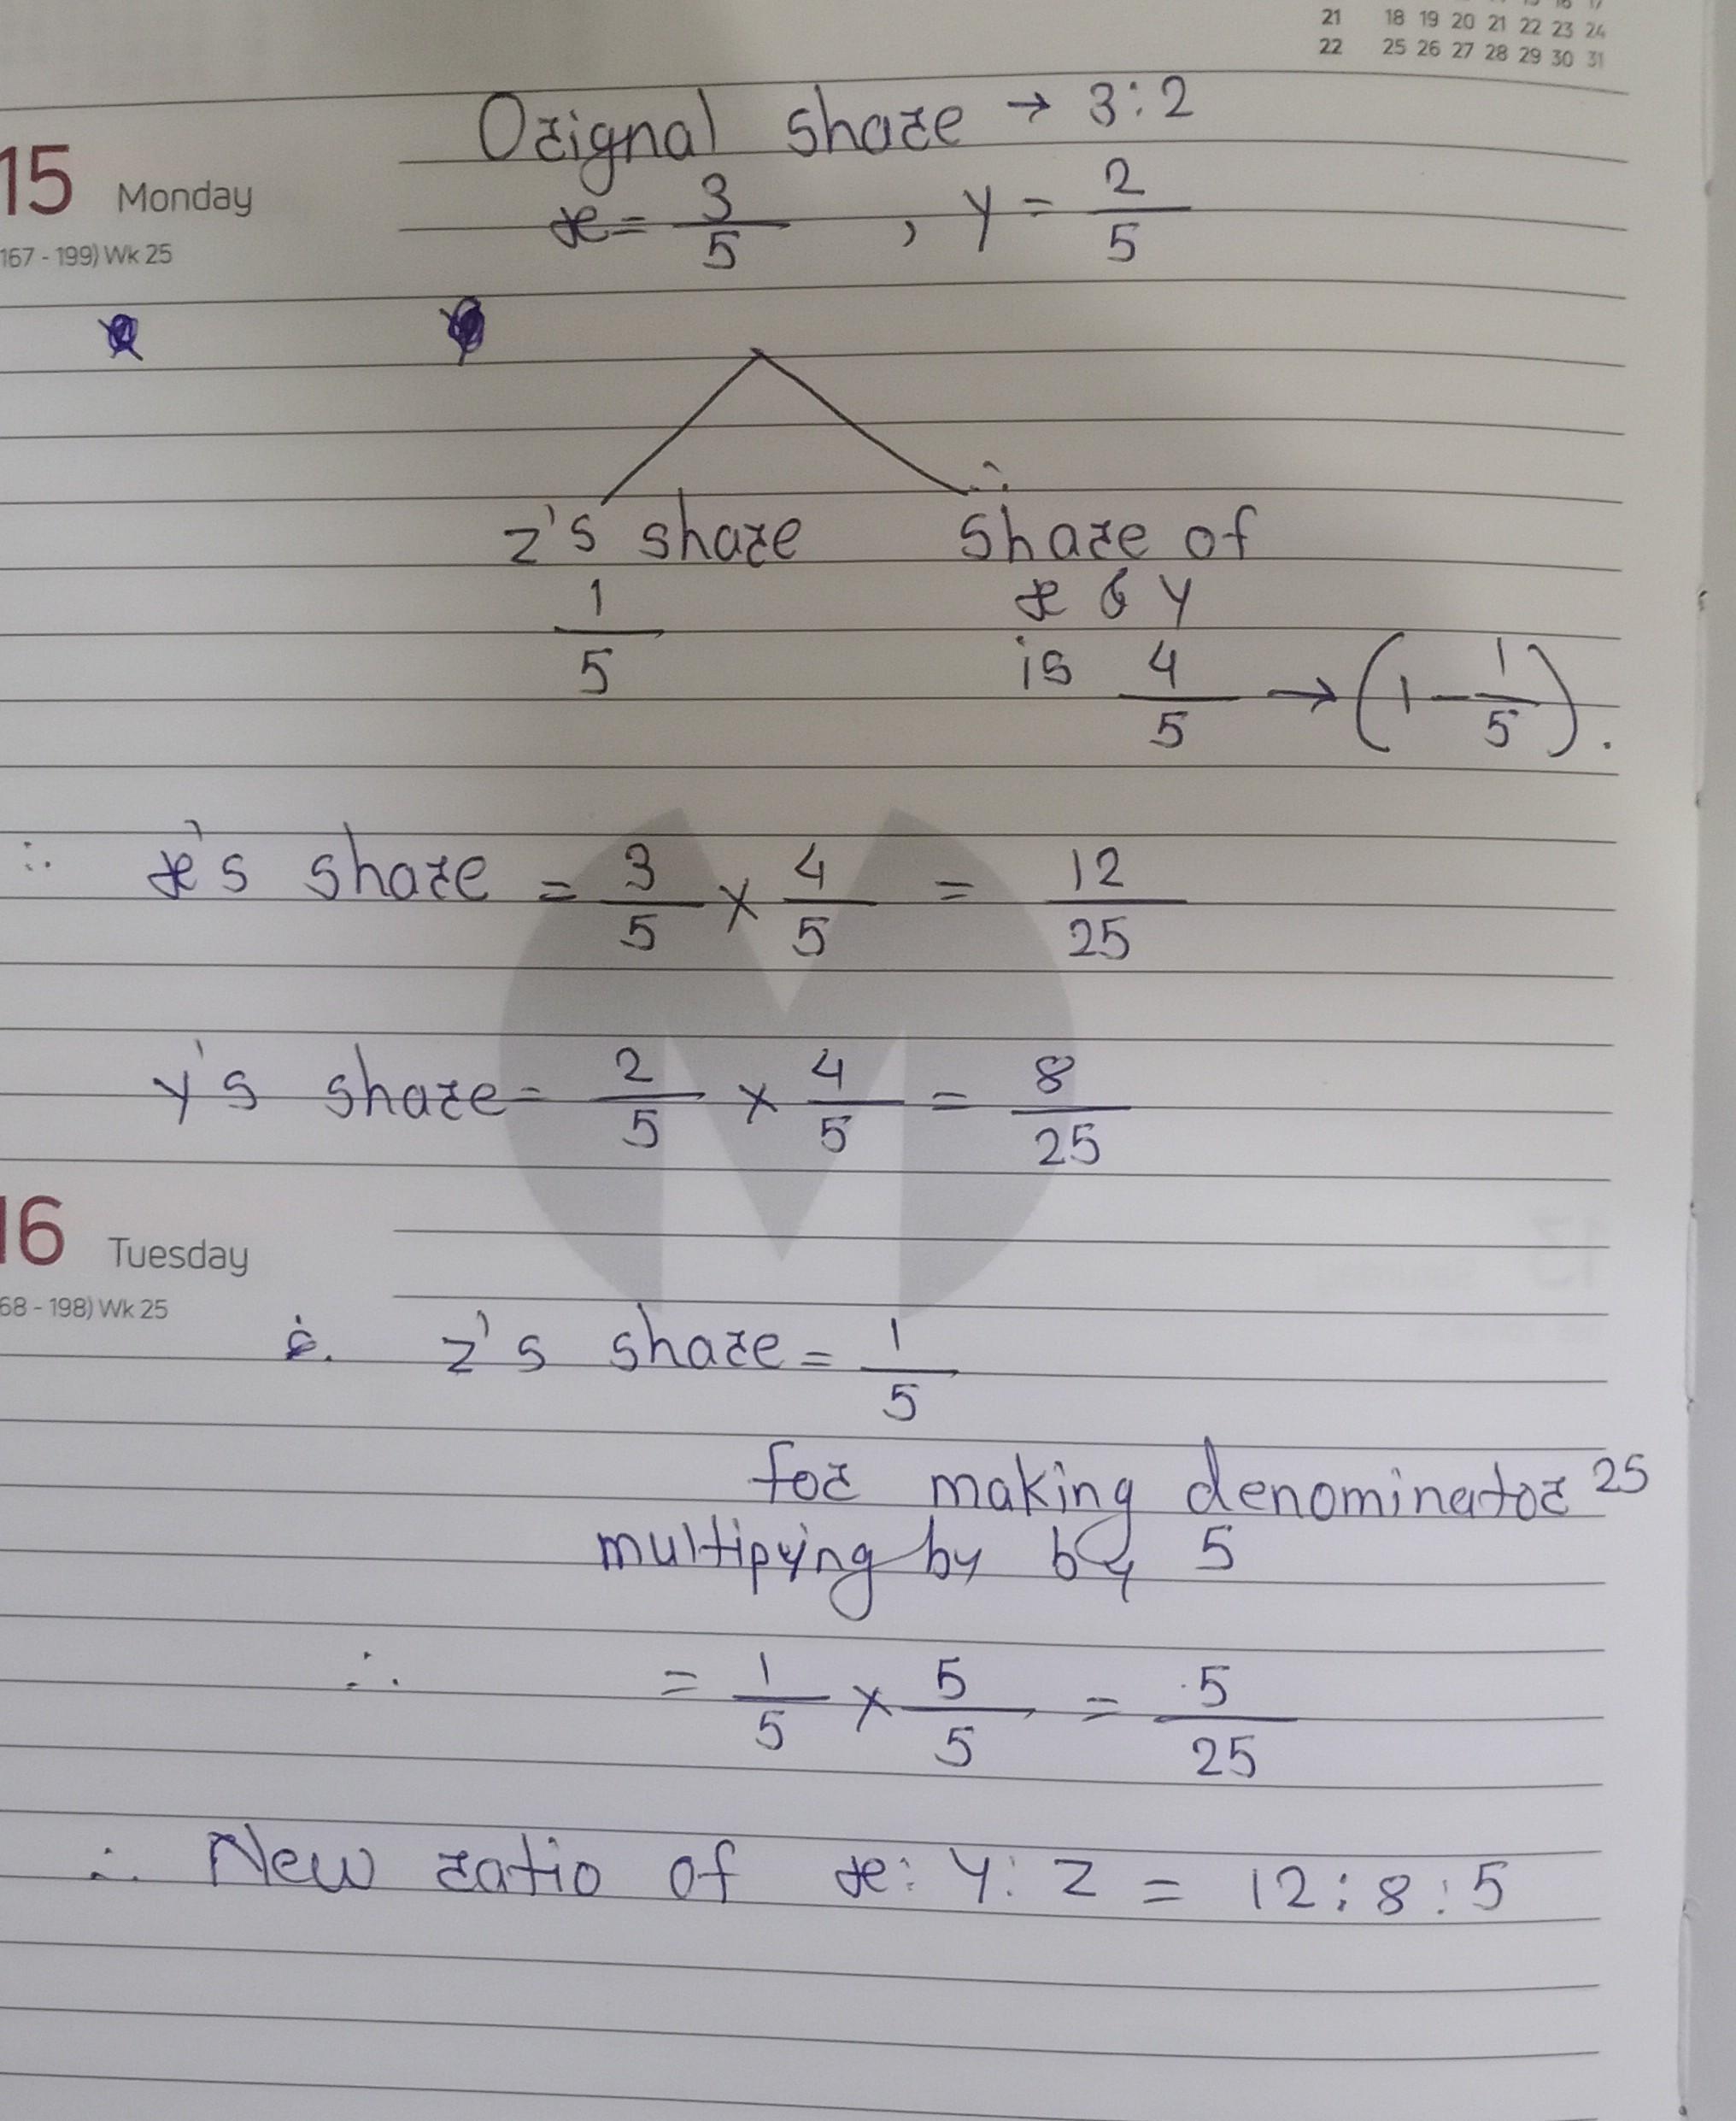 15 16 17
21 18 19 20 21 22 23 24
22 25 26 27 28 29 30 31
Orignal share → 3:2
15 Monday
x = 3/5 , y = 2/5
167 - 199) Wk 25
∴
z's share share of
1/5 x & y
is 4/5 → (1 - 1/5).
∴ x's share = 3/5 × 4/5 = 12/25
y's share = 2/5 × 4/5 = 8/25
16 Tuesday
68 - 198) Wk 25
∴ z's share = 1/5
for making denominator 25
multipying by by 5
∴ = 1/5 × 5/5 = 5/25
∴ New ratio of x : y : z = 12 : 8 : 5